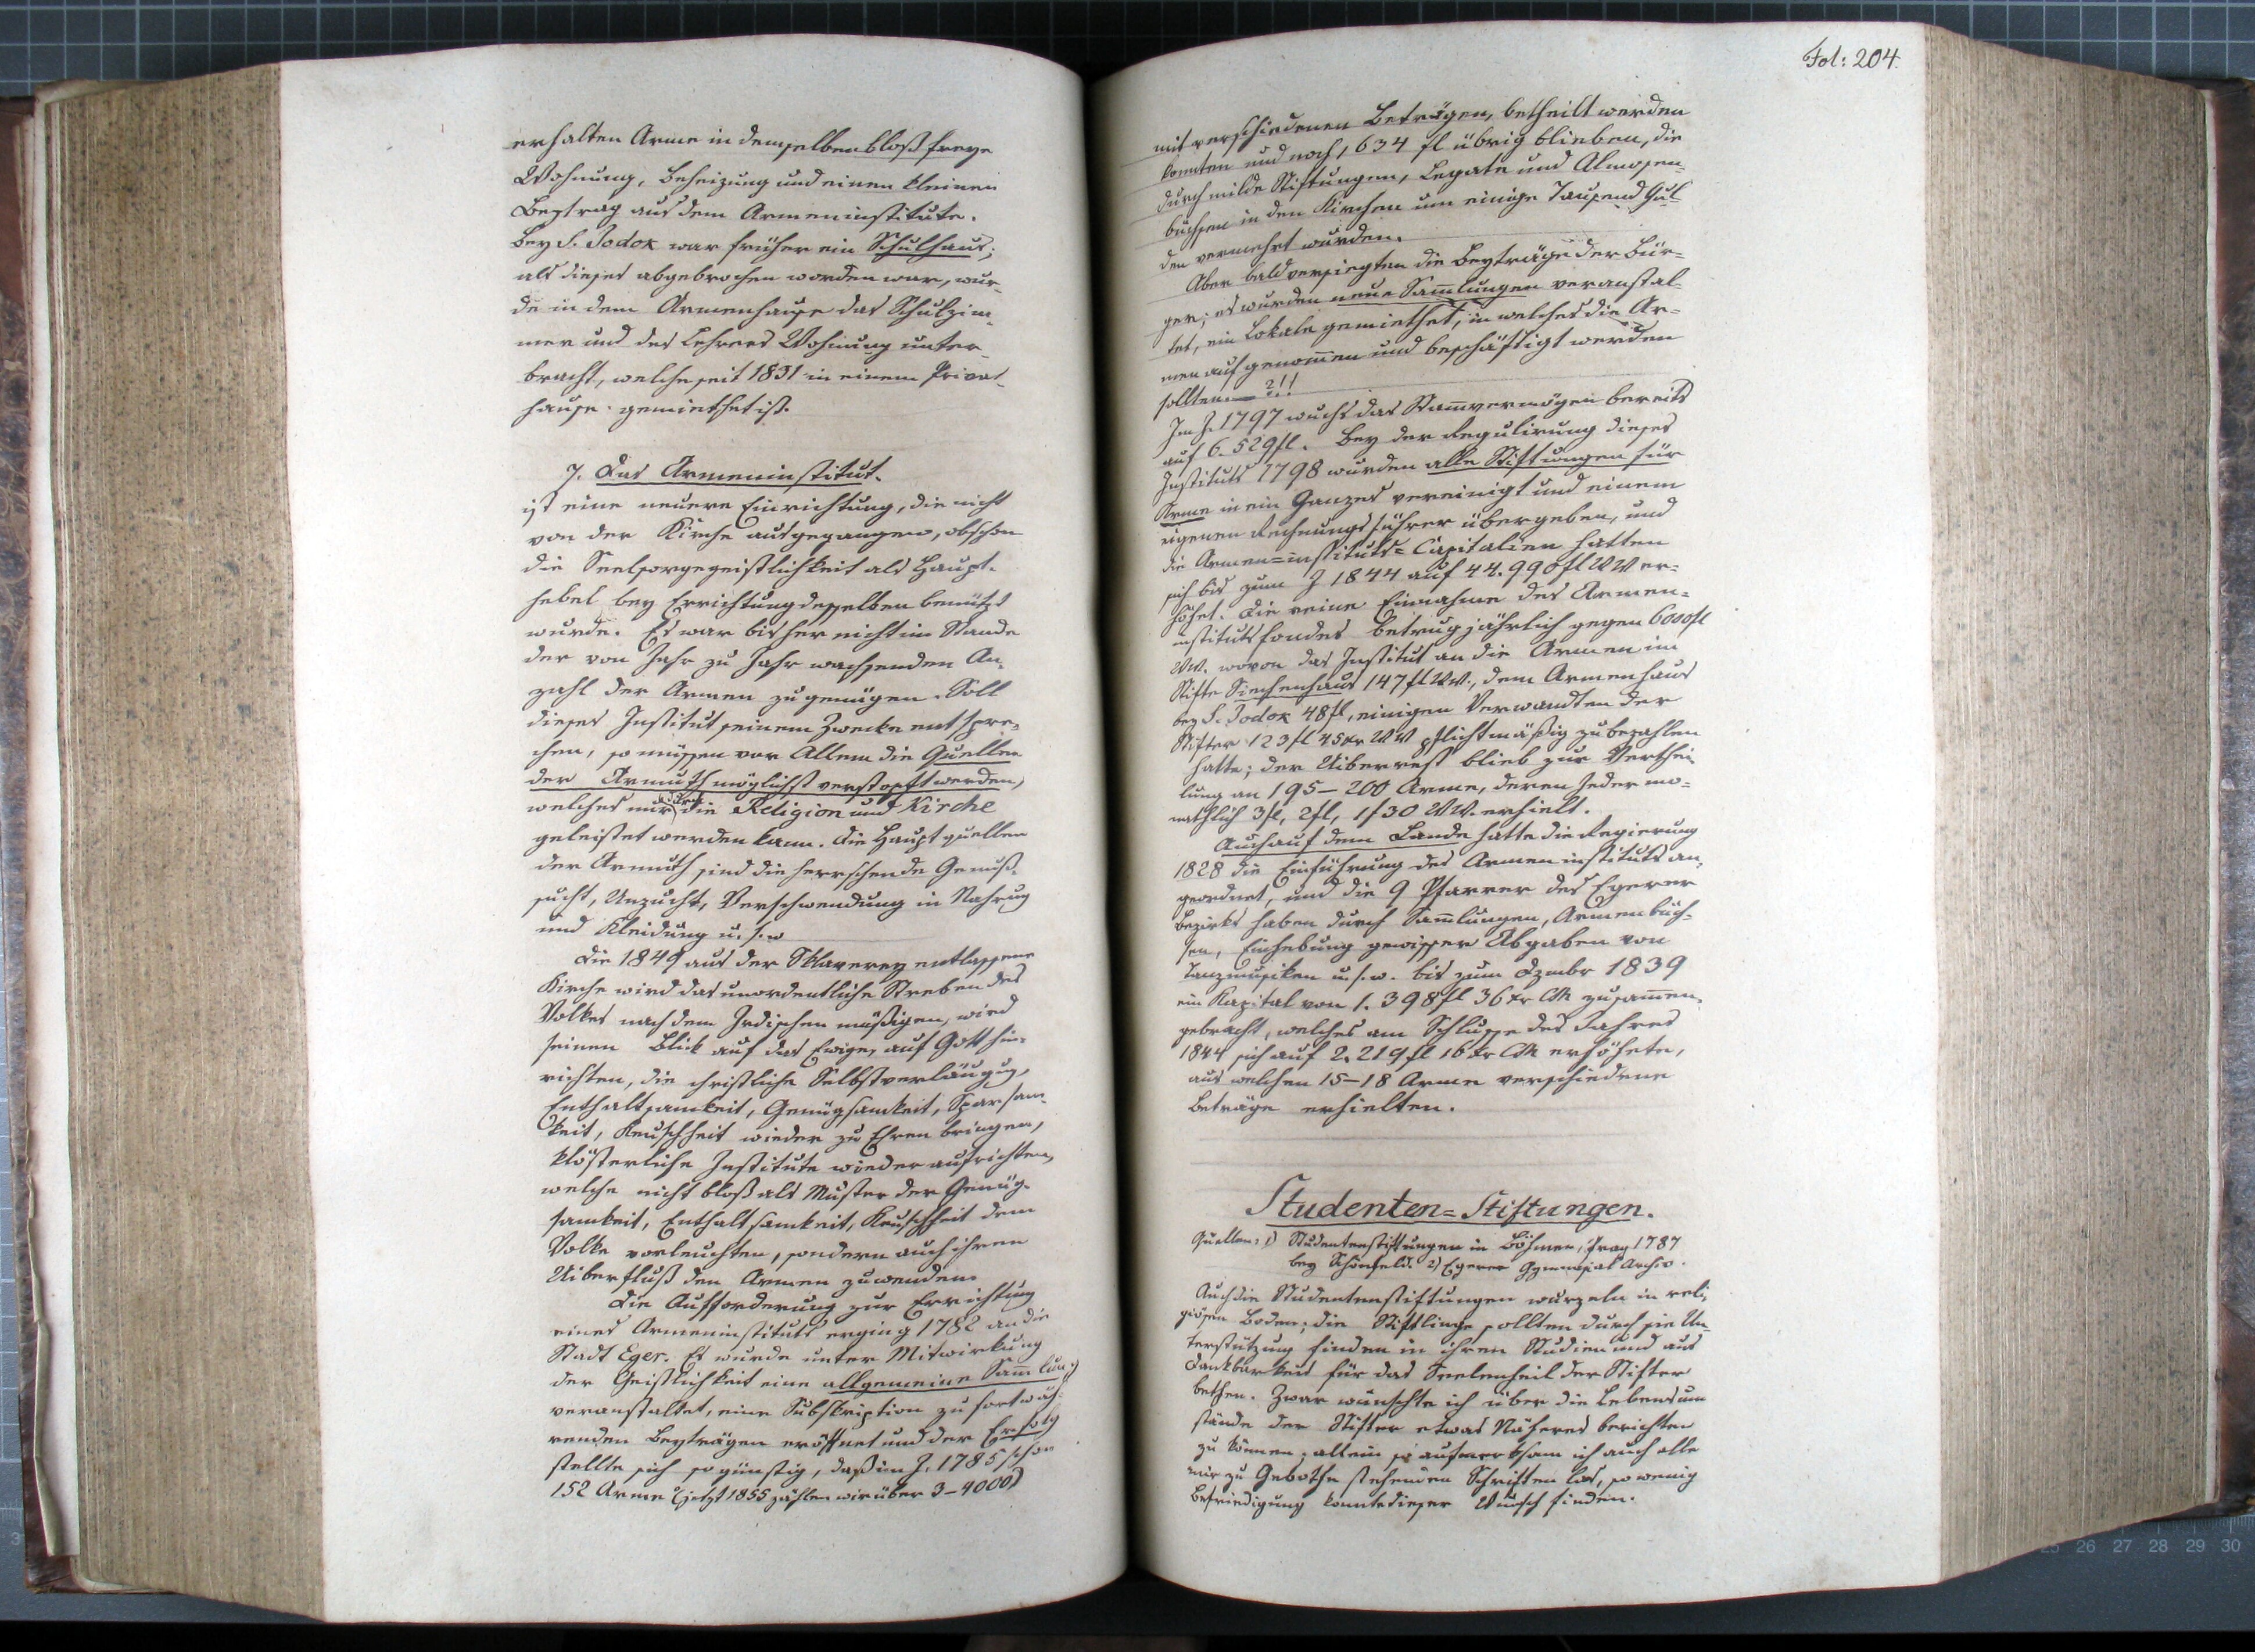 erhalten Arme in demselben bloß freye
Wohnung, Beheizung und einen kleinen
Beytrag aus dem Armeninstitute.
Bey S. Jodok war früher ein Schulhaus;
als dieses abgebrochen worden war, wur-
de in dem Armenhause das Schulzim-
mer und des Lehrers Wohnung unter-
bracht, welche seit 1831 in einem Privat-
hause gemiethet ist.
7. Das Armeninstitut.
ist eine neuere Einrichtung, die nicht
von der Kirche ausgegangen, obschon
die Seelsorgegeistlichkeit als Haupt-
hebel bey Errichtung desselben benützt
wurde. Es war bisher nicht im Stande
der von Jahr zu Jahr wachsenden An-
zahl der Armen zu genügen. Soll
dieses Institut seinem Zwecke entspre-
chen, so müssen vor Allem die Quellen
der Armuth möglichst verstopft werden,
welches nur durch die Religion und Kirche
geleistet werden kann. Die Hauptquellen
der Armuth sind die herrschende Genuß-
sucht, Unzucht, Verschwendung in Nahrug
und Kleidung u. s. w
Die 1849 aus der Sklaverey entlassene
Kirche wird das unordentliche Streben des
Volkes nach dem Irdischen mäßigen, wird
seinen Blick auf das Ewige, auf Gott hin-
richten, die christliche Selbstverläugug,
Enthaltsamkeit, Genügsamkeit, Sparsam-
keit, Keuschheit wieder zu Ehren bringen,
klösterliche Institute wieder aufrichten,
welche nicht bloß als Muster der Genüg-
samkeit, Enthaltsamkeit, Keuschheit dem
Volke vorleuchten, sondern auch ihren
Uiberfluß den Armen zuwenden.
Die Aufforderung zur Errichtung
eines Armeninstituts erging 1782 an die
Stadt Eger. Es wurde unter Mitwirkung
der Geistlichkeit eine allgemeine Sam̄lun͞g
veranstaltet, eine Subskription zu fortwäh-
renden Beyträgen eröffnet und der Erfolg
stellte sich so günstig, daß im J. 1785 schon
152 Arme (jetzt 1855 zählen wir über 3-4000)
Fol: 204.
mit verschiedenen Beträgen, betheilt werden
konnten und noch 1634 fl übrig blieben, die
durch milde Stiftungen, Legate und Almosen-
büchsen in den Kirchen um einige Tausend Gul-
den vermehrt wurden.
Aber bald versiegten die Beyträge der Bür-
ger; es wurden neue Sam̄lungen veranstal-
tet, ein Lokale gemiethet, in welches die Ar-
men aufgenom̄en und beschäftigt werden
sollten. — ?!!
Im J. 1797 wuchs das Stam̄vermögen bereits
auf 6.529 fl. Bey der Regulirung dieses
Instituts 1798 wurden alle Stiftungen für
Arme in ein Ganzes vereinigt und einem
eigenen Rechnungsführer übergeben, und
die Armen=instituts=Capitalien hatten
sich bis zum J 1844 auf 44.990 fl WW er-
höhet. Die reine Einnahme des Armen-
institutsfondes betrug jährlich gegen 6000 fl
WW. wovon das Institut an die Armen im
Stifte Siechenhaus 147 fl WW., dem Armenhaus
bey S. Jodok 48 fl, einigen Verwandten der
Stifter 123 fl 45 xr WW pflichtmäßig zu bezahlen
hatte; der Uiberrest blieb zur Verthei-
lung an 195-200 Arme, deren Jeder mo-
nathlich 3 fl, 2 fl, 1 f 30 WW. erhielt.
Auch auf dem Lande hatte die Regierung
1828 die Einführung des Armeninstituts an-
geordnet, und die 9 Pfarrer des Egerer
Bezirks haben durch Sam̄lungen, Armenbüch-
sen, Einhebung gewisser Abgaben von
Tanzmusiken u. s. w. bis zum Dzmbr 1839
ein Kapital von 1.398 fl 36 xr CM zusam̄en-
gebracht, welches am Schlusse des Jahres
1844 sich auf 2.219 fl 16 xr CM erhöhete,
aus welchen 15-18 Arme verschiedene
Beträge erhielten.
Studenten=Stiftungen.
Quellen: 1) Studentenstiftungen in Böhmen, Prag 1787
bey Schönfeld. 2) Egerer Gymnasial Archiv.
Auch die Studentenstiftungen wurzeln in reli-
giösen Boden; die Stiftlinge sollten durch sie Un-
terstützung finden in ihren Studien und aus
Dankbarkeit für das Seelenheil der Stifter
bethen. Zwar wünschte ich über die Lebensum
stände der Stifter etwas Näheres berichten
zu können; allein so aufmerksam ich auch alle
mir zu Gebothe stehenden Schriften las, so wenig
Befriedigung konnte dieser Wunsch finden.